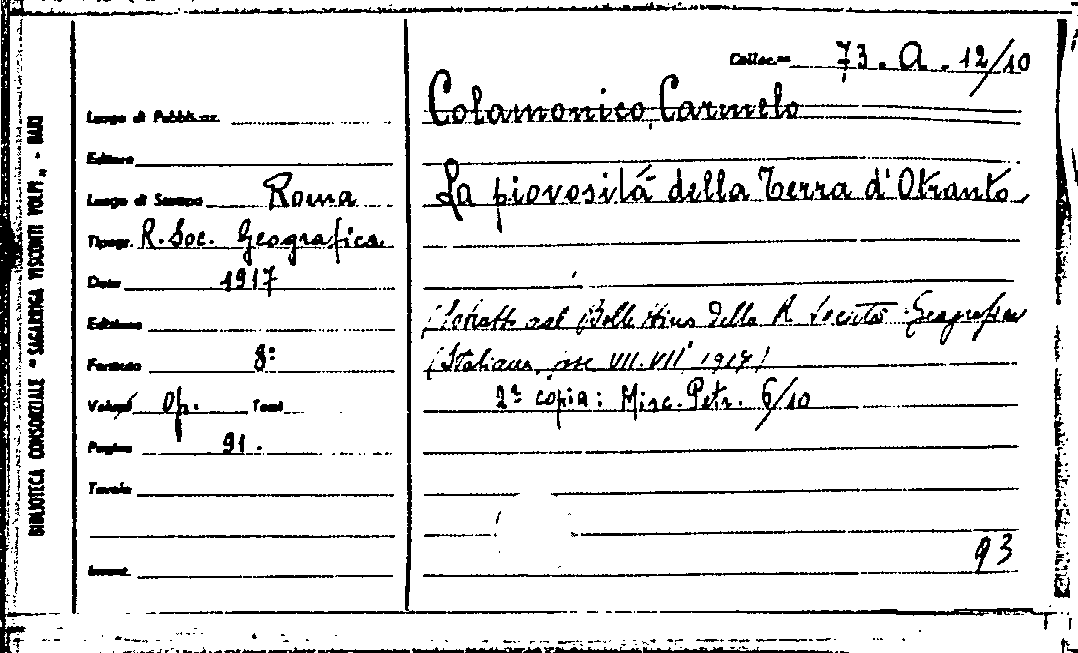 BIBLIOTECA CONSORZIALE "SAGARRIGA VISCONTI VOLPI" - BARI
Colloc.ne 73. A. 12/10
Luogo di Pubblicaz.
Editore
Luogo di Stampa Roma
Tipogr. R. Soc. Geografica
Data 1917
Edizione
Formato 8º
Volumi Op. Tomi
Pagine 91.
Tavole
Invent.
Colamonico, Carmelo
La piovosità della Terra d'Otranto
(Estratto dal Bollettino della R. Società Geografica
Italiana, fasc. VII. VIIIº 1917)
2ª copia: Misc. Petr. 6/10
93